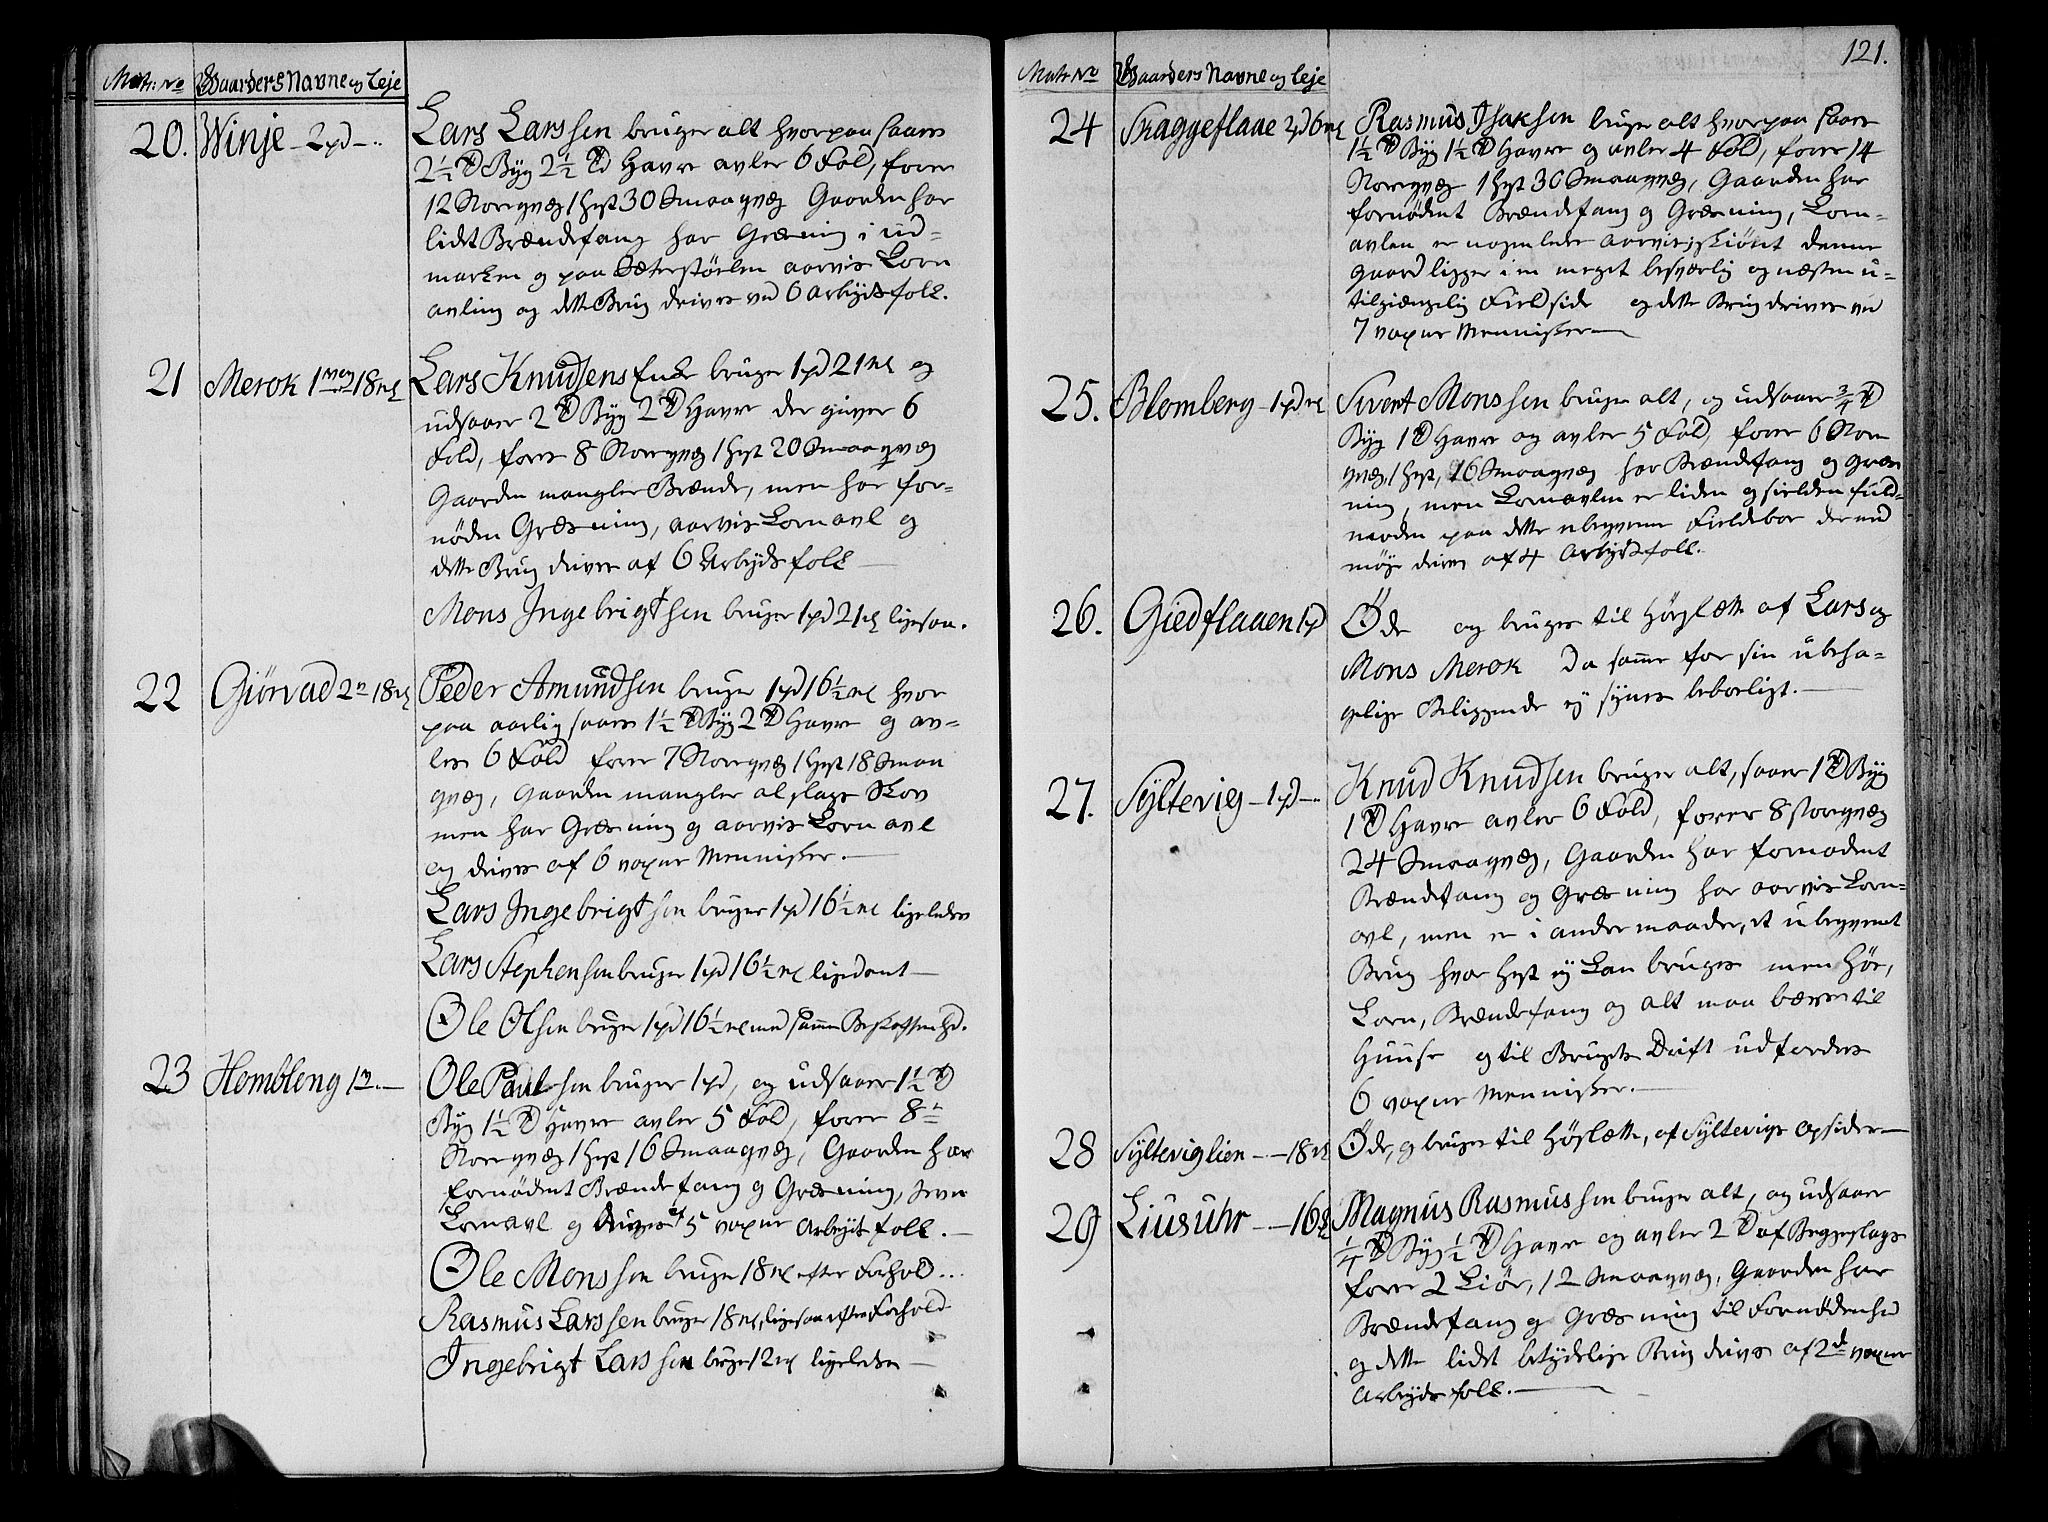 Matr: No Gaarders Navne og Leje
20. Winje - 2pd -..
Lars Larssen bruger alt hvorpaa saaes
2½ Td Byg 2½ Td Havre avler 6 Fold, foder
12 Storqvæg 1 Hest 30 Smaaqvæg Gaarden har
lidet Brændefang har Græsning i ud=
marken og paa Sæterstøelen aarvis Korn
avling og dette Brug drives ved 6 Arbejdsfolk.
21 Merok 1 18
Lars Knudsens Enke bruger 1pd 21 og
udsaaer 2 Td Byg 2 Td Havre der giver 6
Fold, foder 8 Storqvæg 1 Hest 20 Smaaqvæg
Gaarden mangler Brænde, men har for=
nøden Græsning, aarvis Kornavl og
dette Brug drives af 6 Arbejdsfolk
Mons Ingebrigtsen bruger 1pd 21 ligesaa.
22 Giørvad 18
Peder Amundsen bruger 1pd 16½ hvor
paa aarlig saaes 1½ Td Byg 2 Td Havre og av=
les 6 Fold foder 7 Storqvæg 1 Hest 18 Smaa
qvæg, Gaarden mangler al slags Skov
men har Græsning og aarvis Kornavl
og drives af 6 voxne Mennisker.
Lars Ingebrigtsen bruger 1pd 16½ ligeledes
Lars Stephensen bruger 1pd 16½ ligedant
Ole Olsen bruger 1pd 16½ med samme Beskaffenhed.
23 Hombleng 1
Ole Paulsen bruger 1pd, og udsaaer 1½ Td
Byg 1½ Td Havre avler 5 Fold, foder 8
Storqvæg 1 Hest 16 Smaaqvæg, Gaarden har
fornødent Brændefang og Græsning,
Kornavl og 5 voxne Arbejdsfolk.
Ole Monssen bruger 18 efter Forhold...
Rasmus Larssen bruger 18, ligesaa efter Forhold
Ingebrigt Larssen bruger 12 ligeledes
121.
Matr No Gaarders Navne og Leje
24 Skaggeflaae 2pd 6
Rasmus Isaksen bruger alt hvorpaa saaes
1½ Td Byg 1½ Td Havre og avler 4 Fold, foder 14
Storqvæg 1 Hest 30 Smaaqvæg, Gaarden har
fornødent Brændefang og Græsning, Korn=
avlen er nogenledes aarvis, skiønt denne
Gaard ligger i en meget besværlig og næsten u=
tilgiængelig Fieldside og dette Brug drives ved
7 voxne Mennisker
25. Blomberg - 1pd
Sivert Monssen bruger alt, og udsaaer ¾ Td
Byg 1 Td Havre og avler 5 Fold, foder 6 Stor
qvæg, 1 Hest, 16 Smaaqvæg har Brændefang og Græs
ning, men Kornavlen er liden og sielden fuld=
moden paa dette ubeqvemme Fieldebor der med
møje drives af 4 Arbejdsfolk.
26. Giedflaaen 1pd
Øde og bruges til Høeslætte af Lars og
Mons Merok da samme for sin ubeha=
gelige Beliggende ej synes beboeligt.
27. Syltevig - 1pd -..
Knud Knudsen bruger alt, saaer 1 Td Byg
1 Td Havre avler 6 Fold, foder 8 Storqvæg
24 Smaaqvæg, Gaarden har fornødent
Brændefang og Græsning har aarvis Korn=
avl, men er i andre maader, et ubeqvemt
Brug hvor Hest ej kan bruges men Høe,
Korn, Brændefang og alt maa bæres til
Huuse og til Brugets Drift udfordres
6 voxne Mennisker.
28 Sylteviglien - - 18
Øde, og bruges til Høslætte, af Syltevigs Opsider
29 Liusuhr - - 16
Magnus Rasmussen bruger alt, og udsaaer
¼ Td Byg ½ Td Havre og avler 2 Td af Beggeslags
foder 2 Kiør, 12 Smaaqvæg, Gaarden har
Brændefang og Græsning til Fornødenhed
og dette lidet betydelige Brug drives af 2de voxne
Arbejdsfolk.